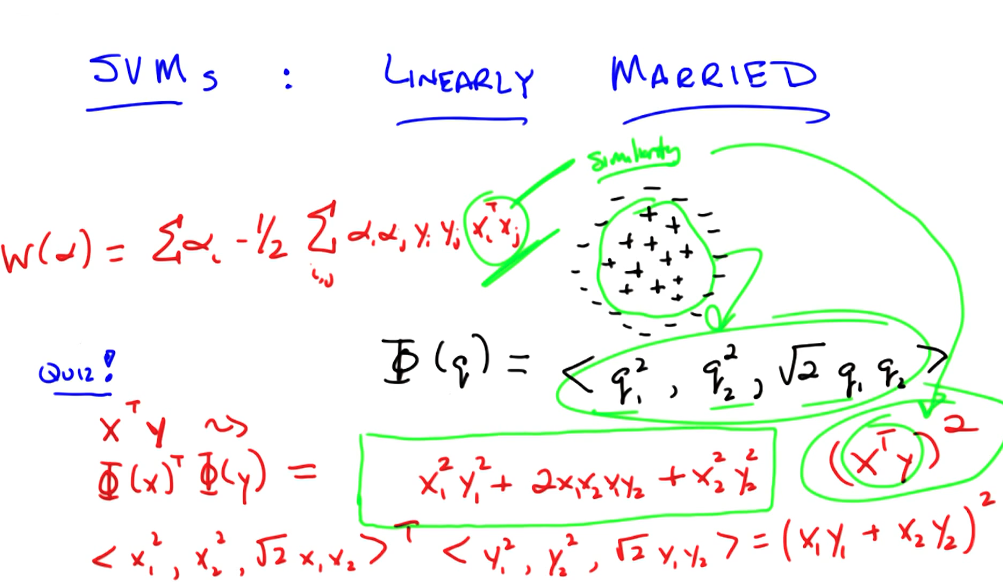 SVMs : LINEARLY MARRIED
similarity
W(α) = Σαᵢ - 1/2 Σᵢ,ⱼ αᵢαⱼ yᵢ yⱼ xᵢᵀxⱼ
Φ(q) = < q₁², q₂², √2 q₁ q₂ >
QUIZ!
xᵀy ↝ (xᵀy)²
Φ(x)ᵀ Φ(y) = x₁²y₁² + 2x₁x₂y₁y₂ + x₂²y₂²
< x₁², x₂², √2 x₁x₂ >ᵀ < y₁², y₂², √2 y₁y₂ > = (x₁y₁ + x₂y₂)²